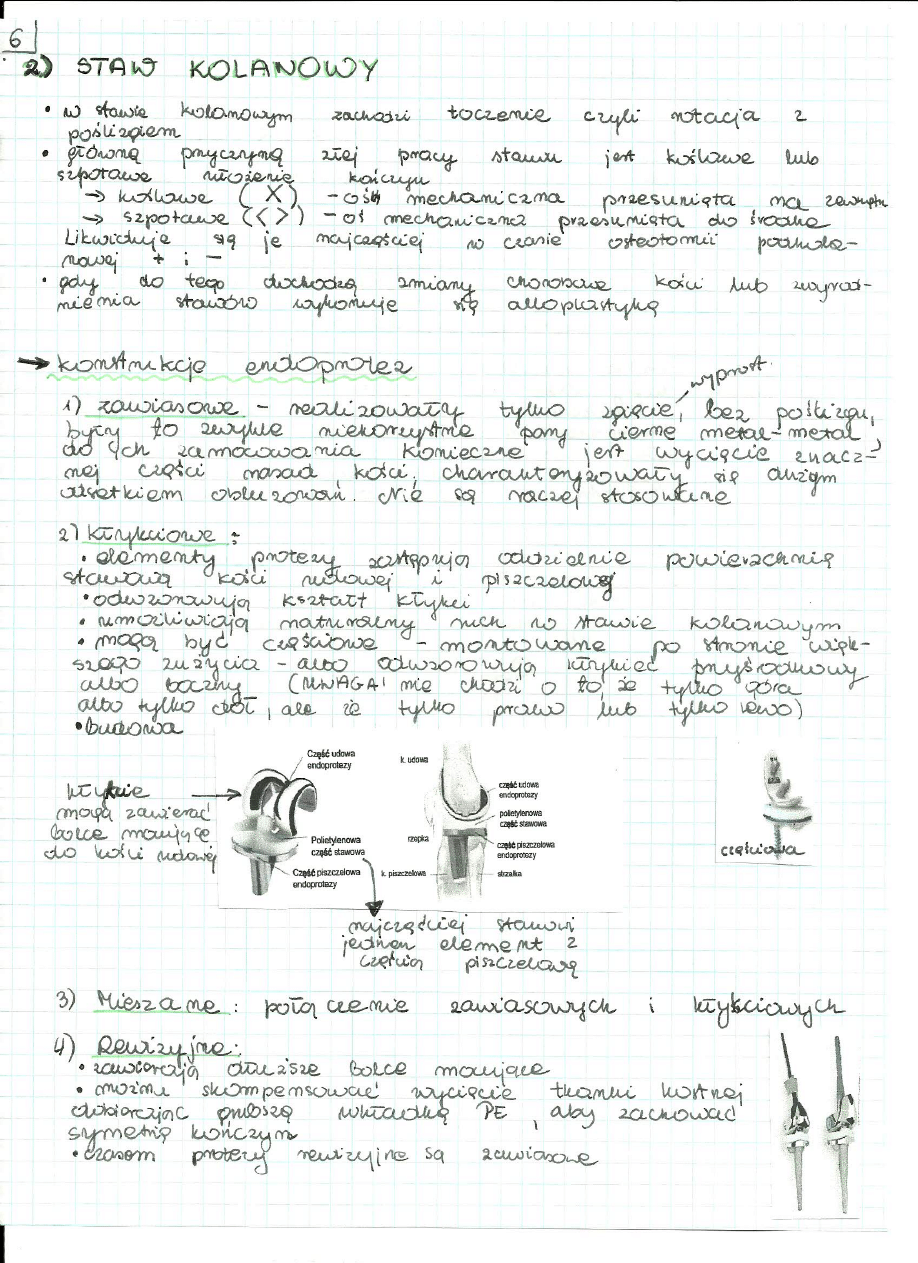 6
2) STAW KOLANOWY
• w stawie kolanowym zachodzi toczenie czyli rotacja z
poślizgiem
• główną przyczyną złej pracy stawu jest koślawe lub
szpotawe ułożenie kończyn
→ koślawe (X) - oś mechaniczna przesunięta na zewnątrz
→ szpotawe (<>) - oś mechaniczna przesunięta do środka
Likwiduje się je najczęściej w czasie osteotomii podkola-
nowej + i -
• gdy do tego dochodzą zmiany chorobowe kości lub zwyrod-
nienia stawów wykonuje się alloplastykę
→ konstrukcje endoprotez
wyprost.
1) zawiasowe - realizowały tylko zgięcie, bez poślizgu,
były to zwykle niekorzystne pary cierne metal-metal
do ich zamocowania konieczne jest wycięcie znacz-
nej części nasad kości, charakteryzowały się dużym
odsetkiem obluzowań. Nie są raczej stosowane
2) kłykciowe :
• elementy protezy zastępują oddzielnie powierzchnię
stawową kości udowej i piszczelowej
• odwzorowują kształt kłykci
• umożliwiają naturalny ruch w stawie kolanowym
• mogą być częściowe - montowane po stronie więk-
szego zużycia - albo odwzorowują kłykieć przyśrodkowy
albo boczny (UWAGA! nie chodzi o to, że tylko góra
albo tylko dół, ale że tylko prawo lub tylko lewo)
• budowa
Część udowa
endoprotezy
Polietylenowa
część stawowa
Część piszczelowa
endoprotezy
k. udowa
rzepka
k. piszczelowa
część udowa
endoprotezy
polietylenowa
część stawowa
część piszczelowa
endoprotezy
strzałka
częściowa
kłykcie
mogą zawierać
bolce mocujące
do kości udowej
najczęściej stanowi
jeden element z
częścią piszczelową
3) Mieszane : połączenie zawiasowych i kłykciowych
4) Rewizyjne:
• zawierają dłuższe bolce mocujące
• można skompensować wycięcie tkanki kostnej
dobierając grubszą wkładkę PE, aby zachować
symetrię kończyn
• czasem protezy rewizyjne są zawiasowe